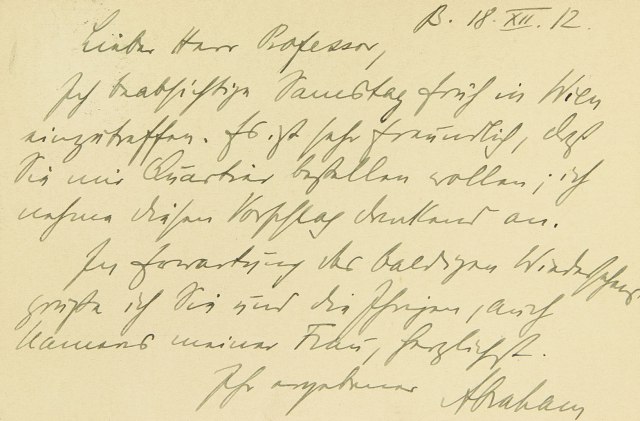 B. 18. XII. 12.
Lieber Herr Professor,
Ich beabsichtige Samstag früh in Wien
einzutreffen. Es ist sehr freundlich, daß
Sie mir Quartier bestellen wollen; ich
nehme diesen Vorschlag dankend an.
In Erwartung des baldigen Wiedersehens
grüße ich Sie und die Ihrigen, auch
namens meiner Frau, herzlichst.
Ihr ergebener Abraham